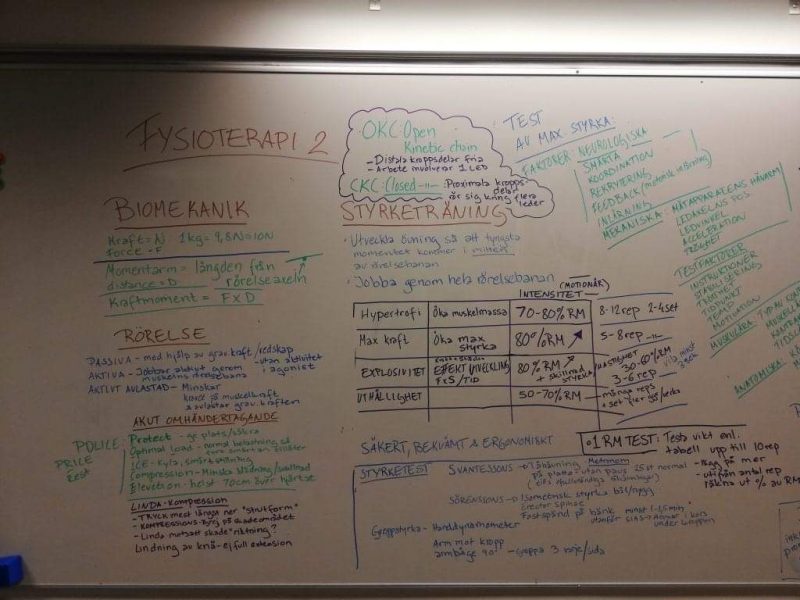 FYSIOTERAPI 2
BIOMEKANIK
Kraft = N 1kg = 9,8N ≈ 10N
force = F
Momentarm = längden från
distance = D rörelseaxeln
Kraftmoment = F x D
RÖRELSE
PASSIVA - med hjälp av grav. kraft / redskap
- utan aktivitet
i agonist
AKTIVA - Jobbar aktivt genom
muskelns rörelsebana
AKTIVT AVLASTAD - Minskar
kravet på muskelkraft
avlastar grav. kraften
AKUT OMHÄNDERTAGANDE
POLICE: Protect - ge plats/säkra
PRICE Optimal load - normal belastning
Rest
ICE - Kyla, smärtstillning
Compression - Minska blödning/svullnad
Elevation - helst 70cm över hjärtat
LINDA - Kompression
- TRYCK mest längst ner "strutform"
- KOMPRESSIONS- på skadeområdet
- Linda motsatt skade"riktning"?
Lindning av knä - ej full extension
OKC: Open
Kinetic chain
- Distala kroppsdelar fria
- Arbete involverar 1 LED
CKC: Closed -||- Proximala kropps
delar
rör sig kring flera
leder
STYRKETRÄNING
• Utveckla övning så att tyngsta
momentet kommer i mitten
av rörelsebanan
• Jobba genom hela rörelsebanan
(MOTIONÄR)
INTENSITET
Hypertrofi Öka muskelmassa 70-80% RM 8-12 rep 2-4 set
Max kraft Öka max styrka 80% RM 5-8 rep -||-
EXPLOSIVITET EFFEKTUTVECKLING FxS/TID 80% RM + skillnad styrka HASTIGHET 30-60% RM 3-6 rep vila minst
UTHÅLLIGHET 50-70% RM många reps
+ set fler
SÄKERT, BEKVÄMT & ERGONOMISKT
• 1 RM TEST: Testa vikt enl.
tabell upp till 10 rep
- lägg på mer
- utifrån antal rep
räkna ut % av RM
STYRKETEST
SVANTESSONS - Tåhävning Metronom
på platta utan paus 15 st normal
SÖRENSSONS - Isometrisk styrka bål/rygg
erector spinae
Fastspänd på bänk
utanför SIAS - Armar i kors
under kroppen
Greppstyrka - Handdynamometer
Arm mot kropp
armbåge 90° - Greppa 3 varje/sida
TEST
AV MAX. STYRKA:
FAKTORER NEUROLOGISKA
SMÄRTA
KOORDINATION
REKRYTERING
FEEDBACK (motorisk inlärning)
INLÄRNING
MEKANISKA: MÄTAPPARATENS HÄVARM
LEDAXELNS POS.
LEDVINKEL
ACCELERATION
TRÖGHET
TESTFAKTORER
INSTRUKTIONER
STABILISERING
TIDPUNKT
TEMPO
MOTIVATION
MUSKULÄRA:
ANATOMISKA: